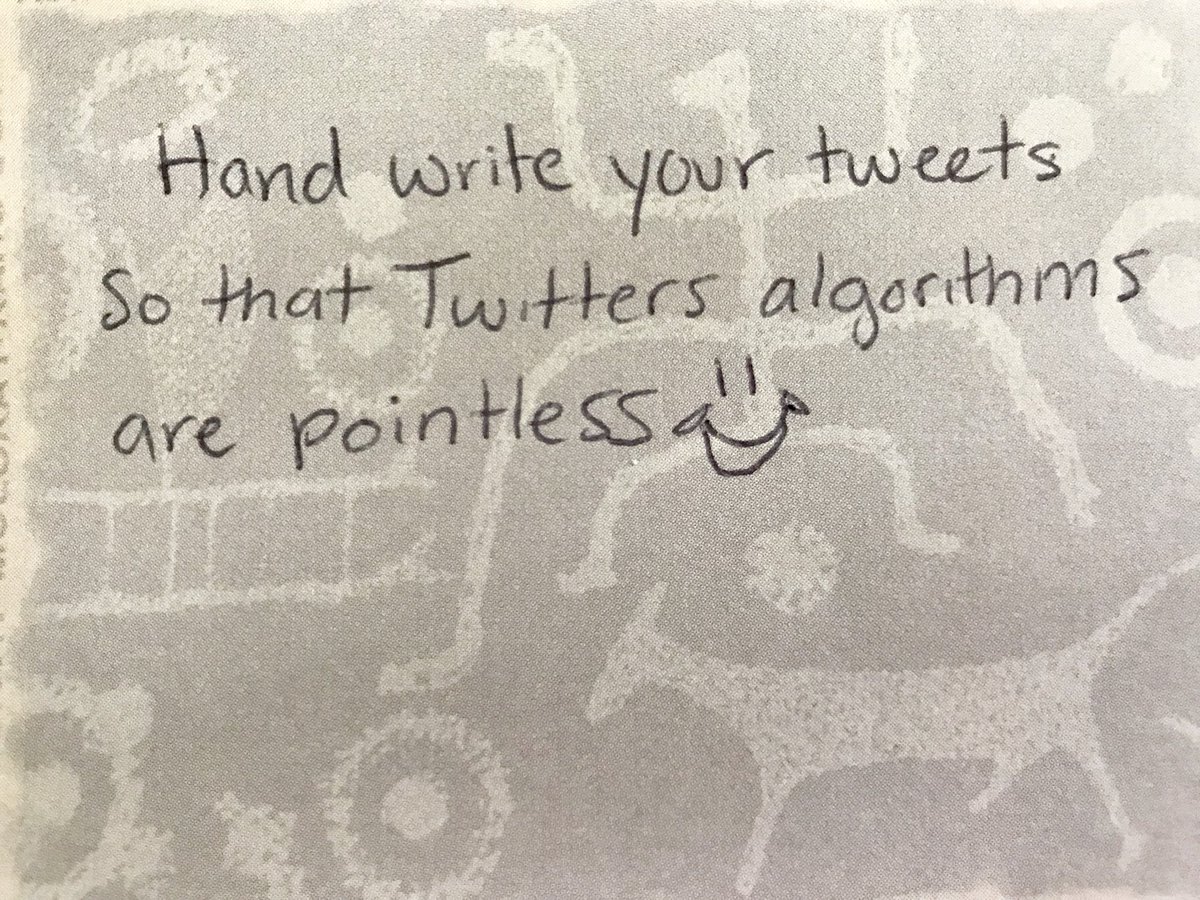 Hand write your tweets
So that Twitters algorithms
are pointless